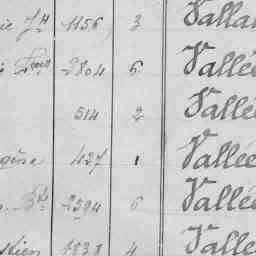 ie Jh 1156 3 Valla
s Fçois 2804 6 Vallée
514 2 Vallée
gène 427 1 Vallée
Bte 2594 6 Vallée
stien 1838 4 Valle